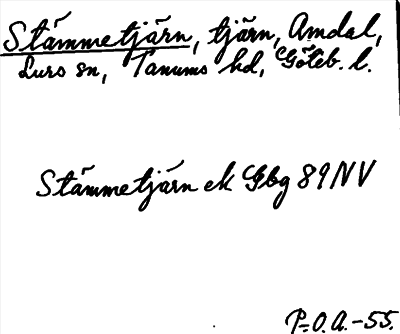 Stämmetjärn, tjärn, Amdal,
Lurs sn, Tanums hd, Göteb. l.
Stämmetjärn ek Gbg 89NV
P.O.A.-55.